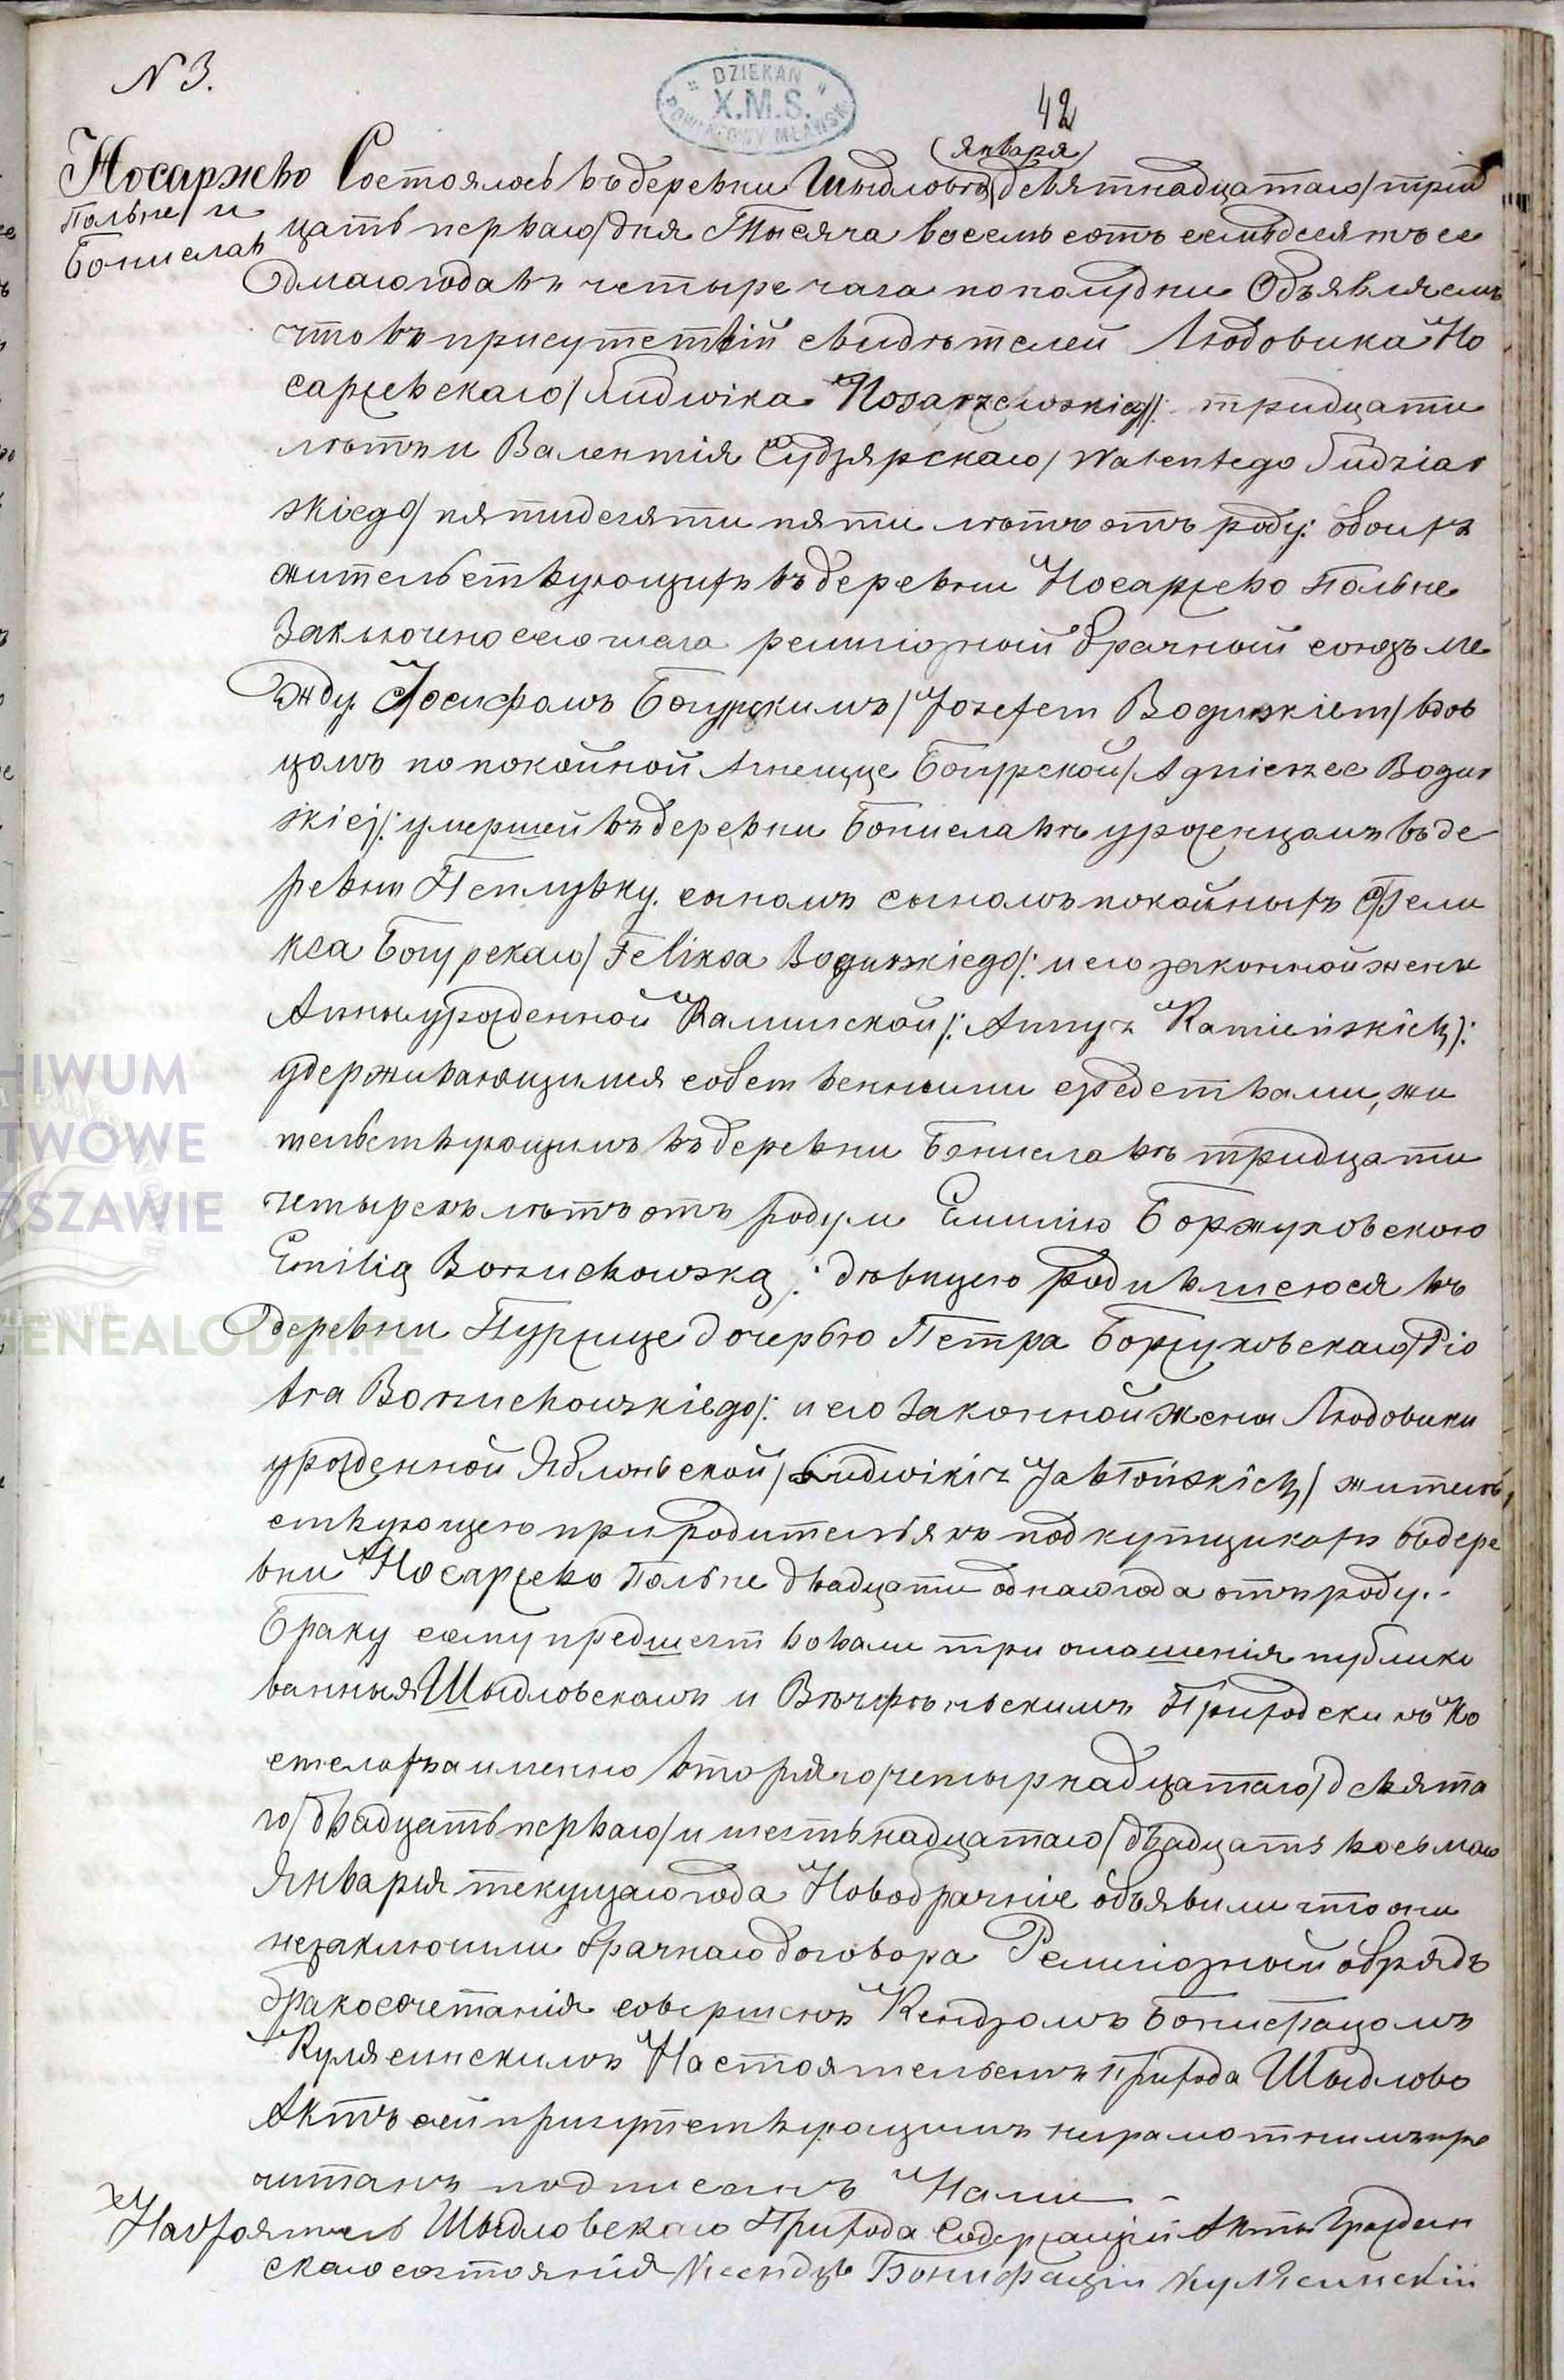 N 3.
DZIEKAN
X.M.S.
POWIATOWY MŁAWSK
42
(января)
Носаржево
Польне/ и
Бониславъ
Состоялось въ деревни Шыдлово девятнадцатаго/трид
цать перваго/дня Тысяча восемь сотъ семьдесятъ се
дмаго года въ четыре часа пополудни Объявляемъ
что въ присутствій свидѣтелей Людовика Но
саржевскаго/Ludwika Nosarzewskiego/: тридцати
лѣтъ и Валентія Судзярскаго/Walentego Sudziar
skiego/ пятидесяти пяти лѣтъ отъ роду: обоихъ
жительствующихъ въ деревни Носаржево Польне
Заключено сего числа религіозный брачный союзъ ме
жду Іосифомъ Богурскимъ/Józefem Bogurskiem/вдов
цомъ по покойной Агнешце Богурской/Agnieszce Bogur
skiej/: умершей въ деревни Бониславъ урожденцомъ въ де-
ревни Пеплувку. сыномъ сыномъ покойныхъ Фели
кса Богурскаго/Feliksa Bogurskiego/: и его законной жены
Анны урожденной Каминской/: Anny z Kamieńskich/:
удерживающимся собственными средствами, жи
тельствующимъ въ деревни Бониславъ тридцати
четырехъ лѣтъ отъ роду и Емилію Боржуховскою
Emilią Borzuchowską/: дѣвицею родившеюся въ
деревни Пуржице дочерью Петра Боржуховскаго/Pio
tra Borzuchowskiego/: и его Законной жены Людовики
урожденной Яблоньской/Ludwiki z Jabłońskich/ житель
ствующею при родителяхъ подкупщикахъ въ дере
вни Носаржево Польне двадцати однаго года отъ роду.-
Браку сему предшествовали три оглашенія публико
ванныя Шыдловскомъ и Вѣчфнѣньскимъ Приходскихъ Ко
стелахъ а именно втораго/четырнадцатаго/девята
го/двадцать перваго/и шестьнадцатаго/двадцать восьмаго
Января текущаго года Новобрачніе объявили что они
незаключили брачнаго договора Религіозный обрядъ
бракосочетанія совершенъ Ксендзомъ Бонифацомъ
Кулясинскимъ Настоятельемъ Прихода Шыдлово
Актъ сей присутствующимъ неграмотнимъ про
читанъ подписанъ Нами -
Настоятель Шыдловскаго Прихода Содержащій Акты Граждан
скаго состоянія Ксендзъ Бонифацій Кулясинскій